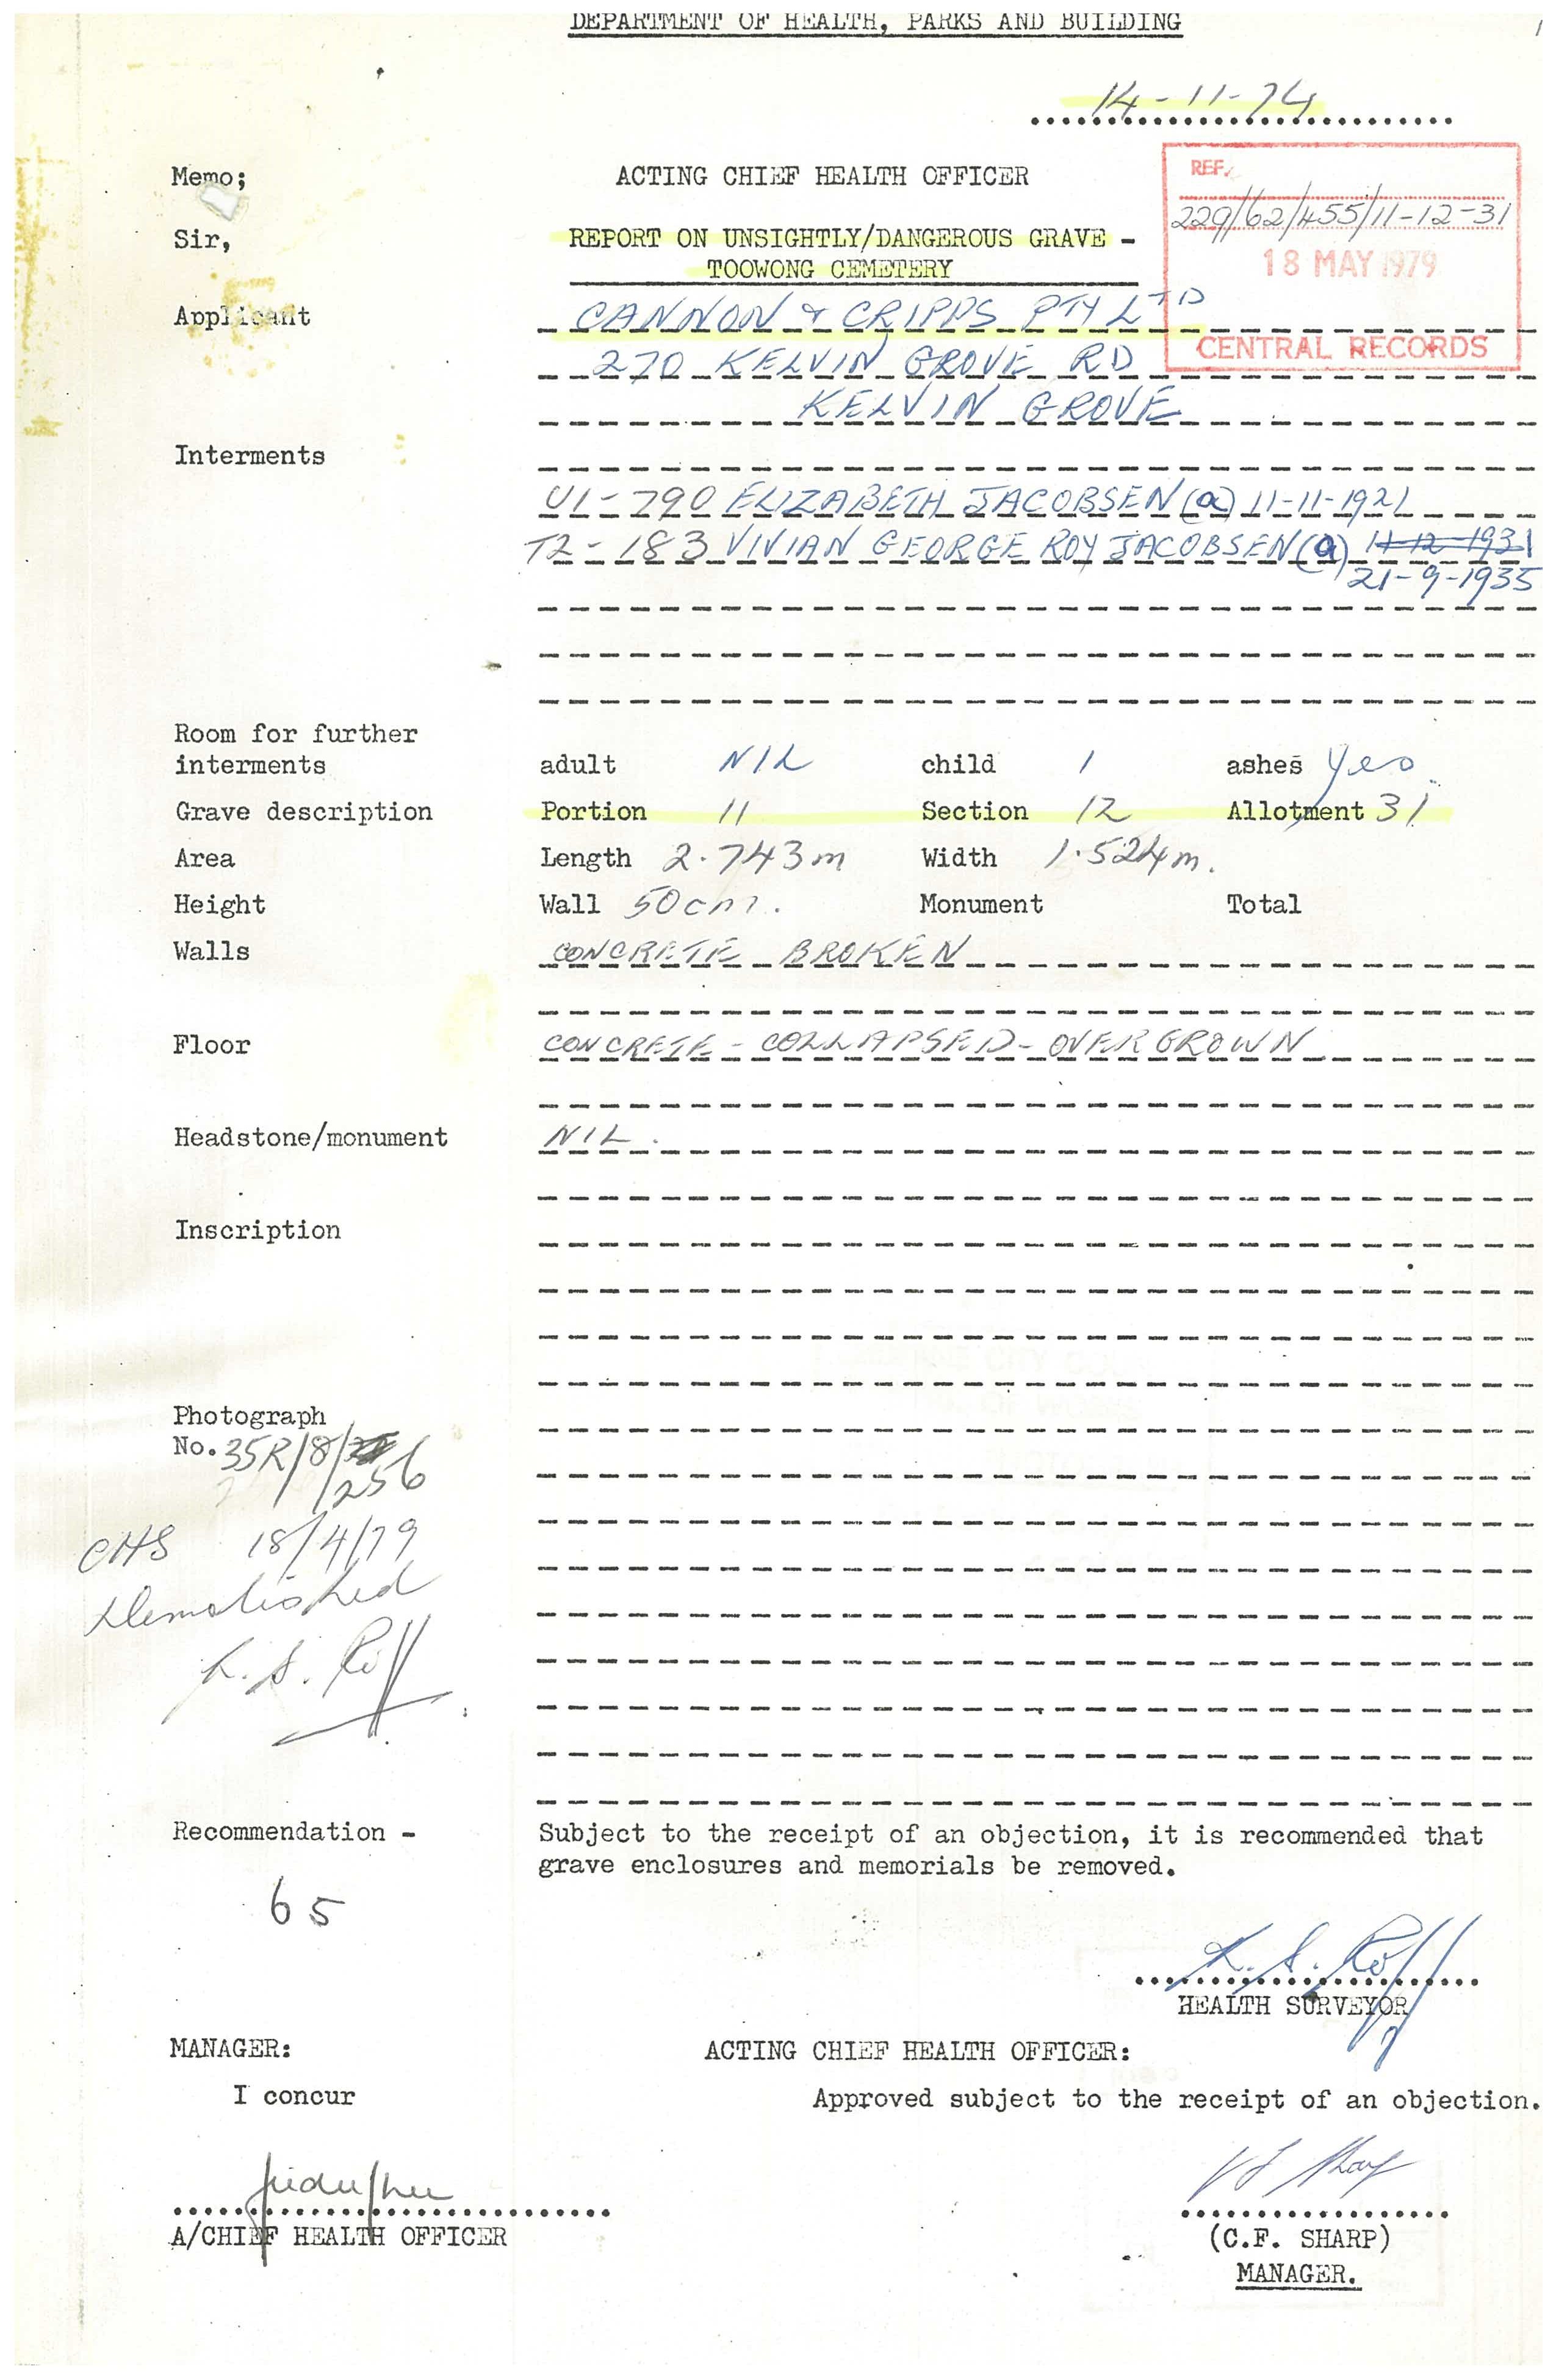 DEPARTMENT OF HEALTH, PARKS AND BUILDING
14-11-74
Memo;
ACTING CHIEF HEALTH OFFICER
REF.
229/62/455/11-12-31
18 MAY 1979
CENTRAL RECORDS
Sir,
REPORT ON UNSIGHTLY/DANGEROUS GRAVE -
TOOWONG CEMETERY
Applicant CANNON & CRIPPS PTY LTD
270 KELVIN GROVE RD
KELVIN GROVE
Interments
U1-790 ELIZABETH JACOBSEN (a) 11-11-1921
T2-183 VIVIAN GEORGE ROY JACOBSEN (a) 11-12-1931
21-9-1935
Room for further
interments adult NIL child 1 ashes yes.
Grave description Portion 11 Section 12 Allotment 31
Area Length 2.743m Width 1.524m.
Height Wall 50cm. Monument Total
Walls CONCRETE BROKEN
Floor CONCRETE - COLLAPSED - OVERGROWN
Headstone/monument NIL.
Inscription
Photograph
No. 35R/8/
/256
CHS 18/4/79
Demolished
K. S. Roff
Recommendation - Subject to the receipt of an objection, it is recommended that
grave enclosures and memorials be removed.
65
K. S. Roff
HEALTH SURVEYOR
MANAGER: ACTING CHIEF HEALTH OFFICER:
I concur Approved subject to the receipt of an objection.
A/CHIEF HEALTH OFFICER (C.F. SHARP)
MANAGER.